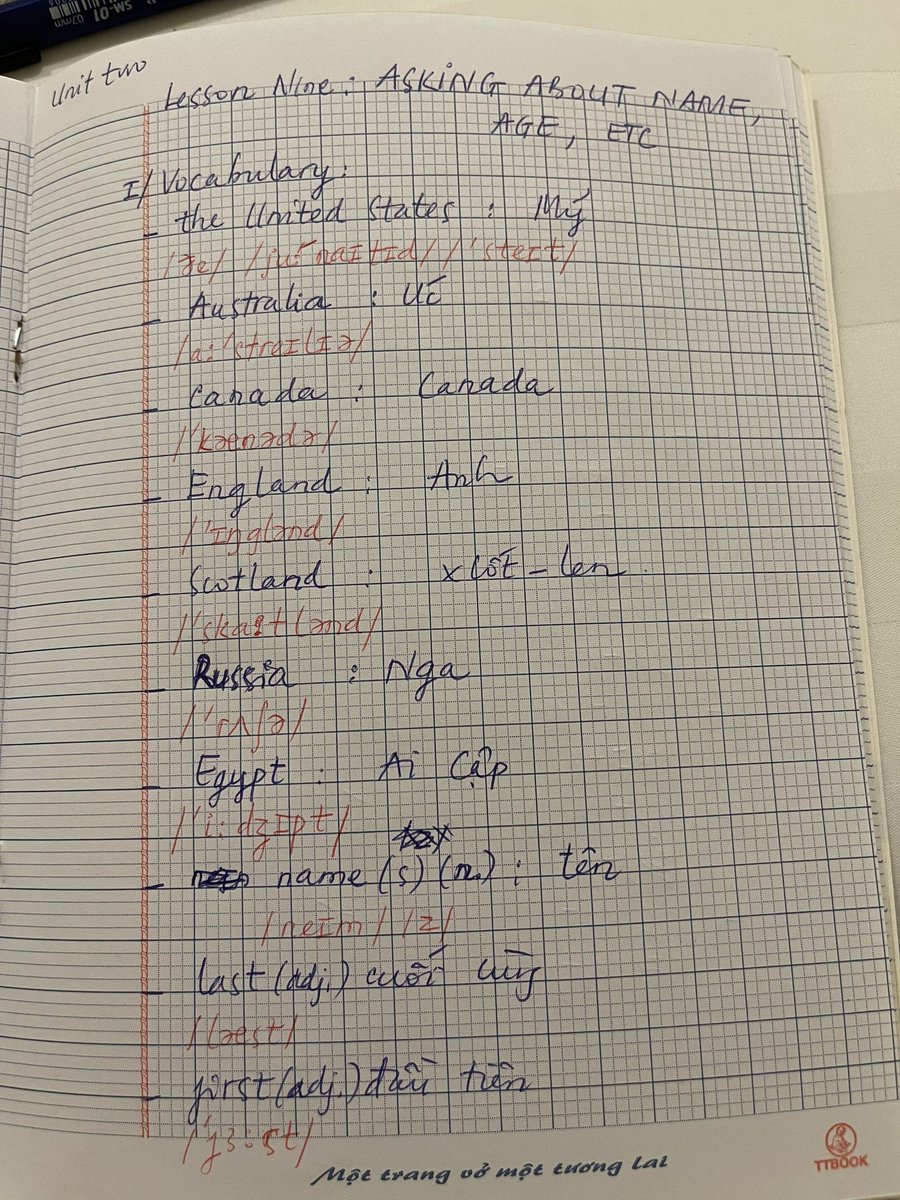 SM-01 0.7mm
Unit two
Lesson Nine: ASKING ABOUT NAME,
AGE, ETC
I/ Vocabulary:
- the United States : Mỹ
/ðe/ /ju:ˈnaɪtɪd/ /ˈsteɪt/
- Australia : Úc
/a:ˈstraɪlɪə/
- Canada : Canada
/ˈkænədə/
- England : Anh
/ˈɪŋglənd/
- Scotland : Xcốt-len
/ˈska:tlənd/
- Russia : Nga
/ˈrʌʃə/
- Egypt : Ai Cập
/ˈi:dʒɪpt/
- name (s) (n.) : tên
/neɪm/ /z/
- last (adj.) cuối cùng
/læst/
- first (adj.) đầu tiên
/ˈfɜ:st/
Một trang vở một tương lai
TTBOOK